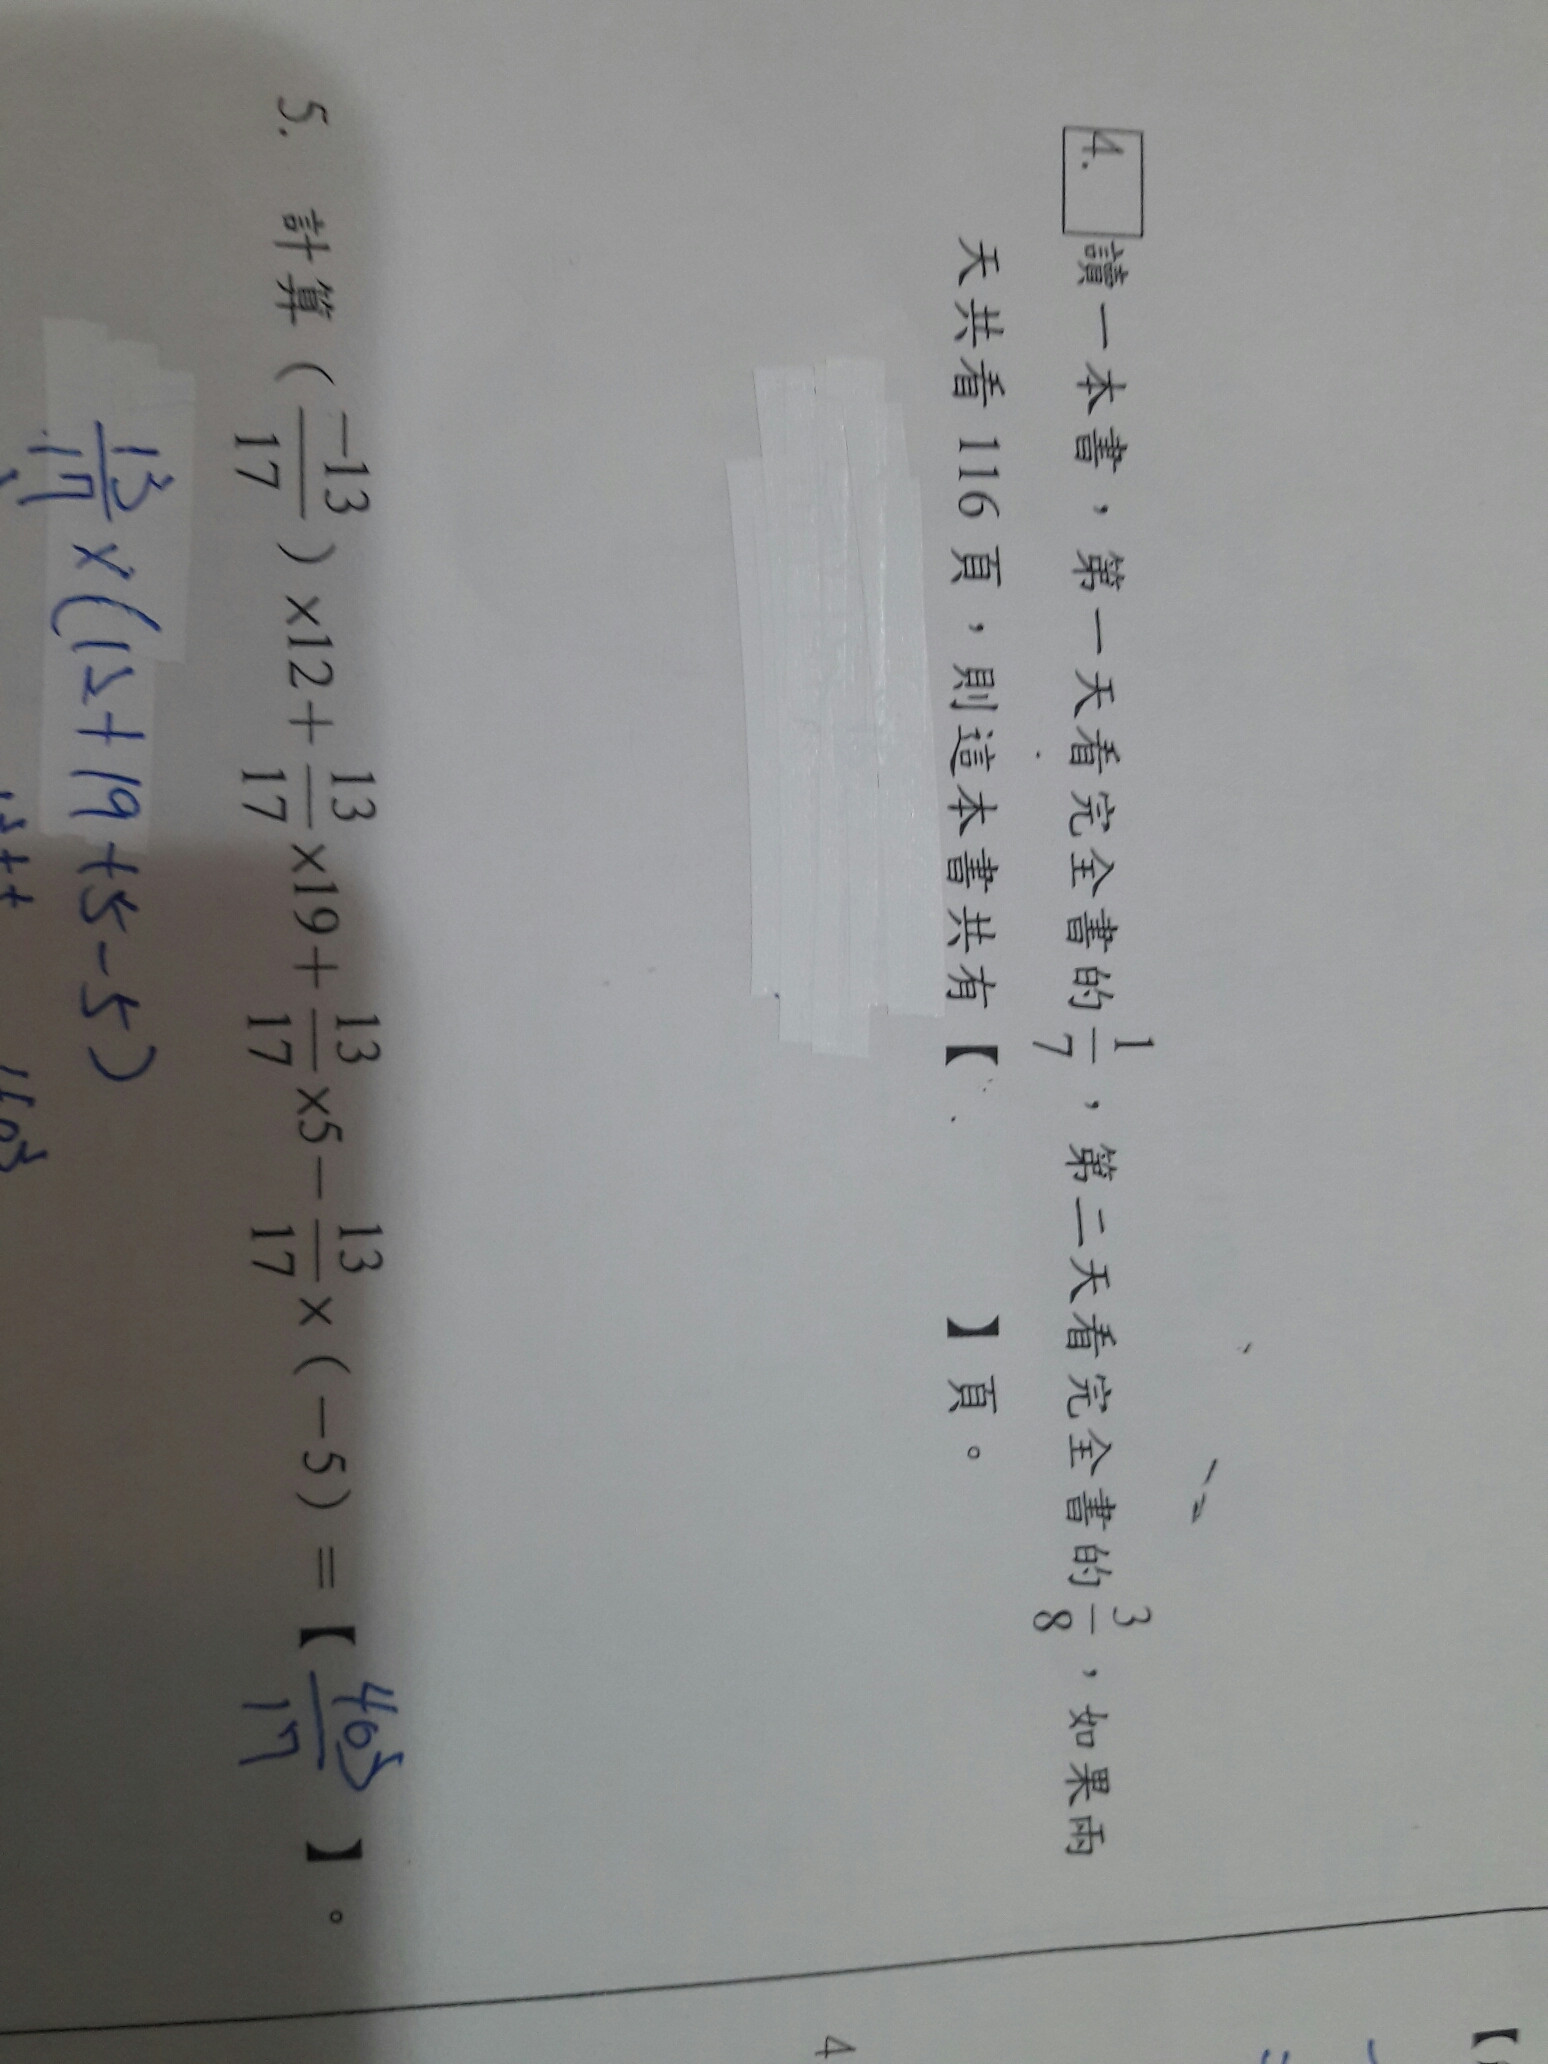 4. 讀一本書，第一天看完全書的 1/7，第二天看完全書的 3/8，如果兩
天共看 116 頁，則這本書共有【 】頁。
5. 計算 (-13/17) ×12+ 13/17 ×19+ 13/17 ×5− 13/17 ×(−5) =【 403/17 】。
13/17 ×(12+19+5-5)
403
4
【